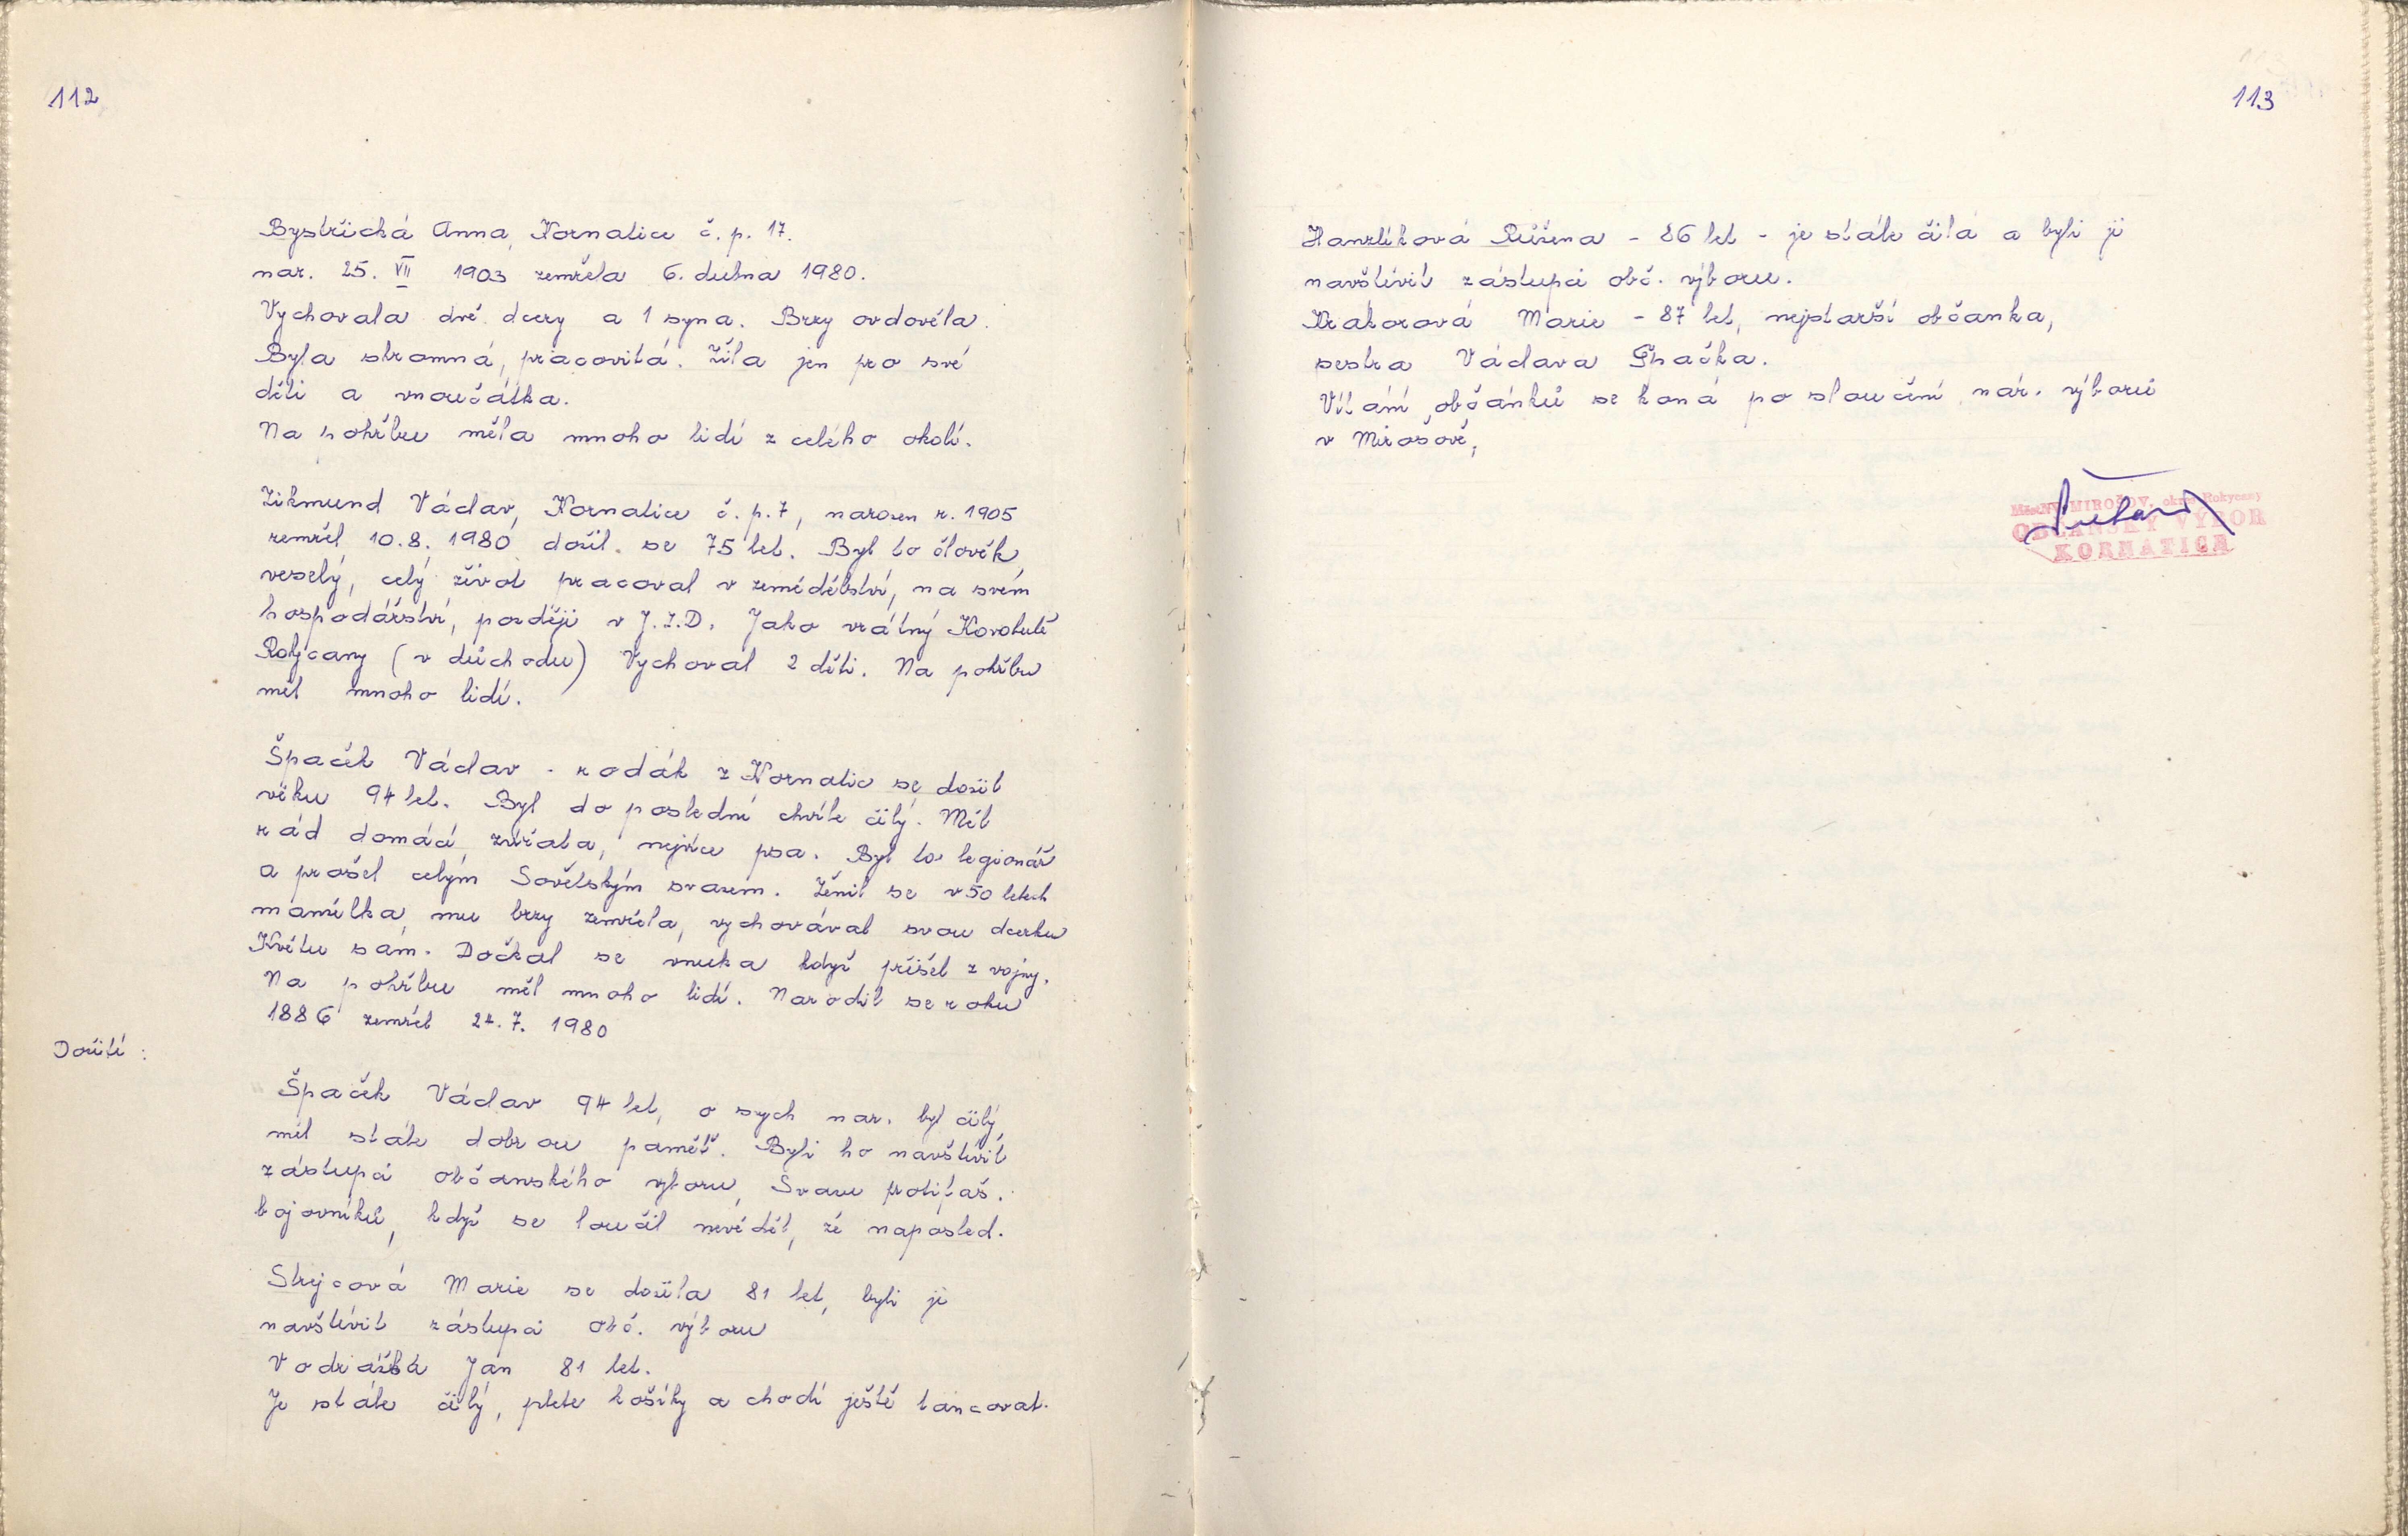 112
Bystřická Anna, Kornatice č. p. 17.
nar. 25. VII 1903 zemřela 6. dubna 1980.
Vychovala dvě dcery a 1 syna. Brzy ovdověla.
Byla skromná, pracovitá. Žila jen pro své
děti a vnoučátka.
Na pohřbu měla mnoho lidí z celého okolí.
Zikmund Václav, Kornatice č. p. 7, narozen r. 1905
zemřel 10. 8. 1980 dožil se 75 let. Byl to člověk
veselý, celý život pracoval v zemědělství, na svém
hospodářství, později v J.Z.D. Jako vrátný Kovohutě
Rokycany (v důchodu) Vychoval 2 děti. Na pohřbu
měl mnoho lidí.
Špaček Václav - rodák z Kornatic se dožil
věku 94 let. Byl do poslední chvíle čilý. Měl
rád domácí zvířata, nejvíce psa. Byl to legionář
a prošel celým Sovětským svazem. Ženil se v 50 letech
manželka mu brzy zemřela, vychovával svou dcerku
Květu sám. Dočkal se vnuka když přišel z vojny.
Na pohřbu měl mnoho lidí. Narodil se roku
1886 zemřel 24. 7. 1980
Dožití :
Špaček Václav 94 let, o svých nar. byl čilý,
měl stále dobrou paměť. Byli ho navštívit
zástupci občanského výboru, Svazu protifaš.
bojovníků, když se loučil nevěděl, že naposled.
Strejcová Marie se dožila 81 let, byli ji
navštívit zástupci obč. výboru
Vodrážka Jan 81 let.
Je stále čilý, plete košíky a chodí ještě tancovat.
113
Hanzlíková Růžena - 86 let - je stále čilá a byli ji
navštívit zástupci obč. výboru.
Krakorová Marie - 87 let, nejstarší občanka,
sestra Václava Špačka.
Vítání občánků se koná po sloučení nár. výborů
v Mirošově.
MěstNV MIROŠOV, okres Rokycany
OBČANSKÝ VÝBOR
KORNATICE